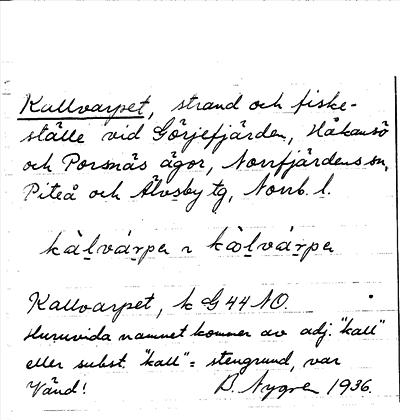 Kallvarpet, strand och fiske-
ställe vid Görjefjärden, Håkansö
och Porsnäs ägor, Norrfjärdens sn,
Piteå och Älvsby tg, Norrb. l.
kàl̠vár̠pe
kàl̠vár̠pe
Kallvarpet, k G 44 NO.
Huruvida namnet kommer av adj. "kall"
eller subst. "kall" = stengrund, var
Vänd! D. Nygren 1936.